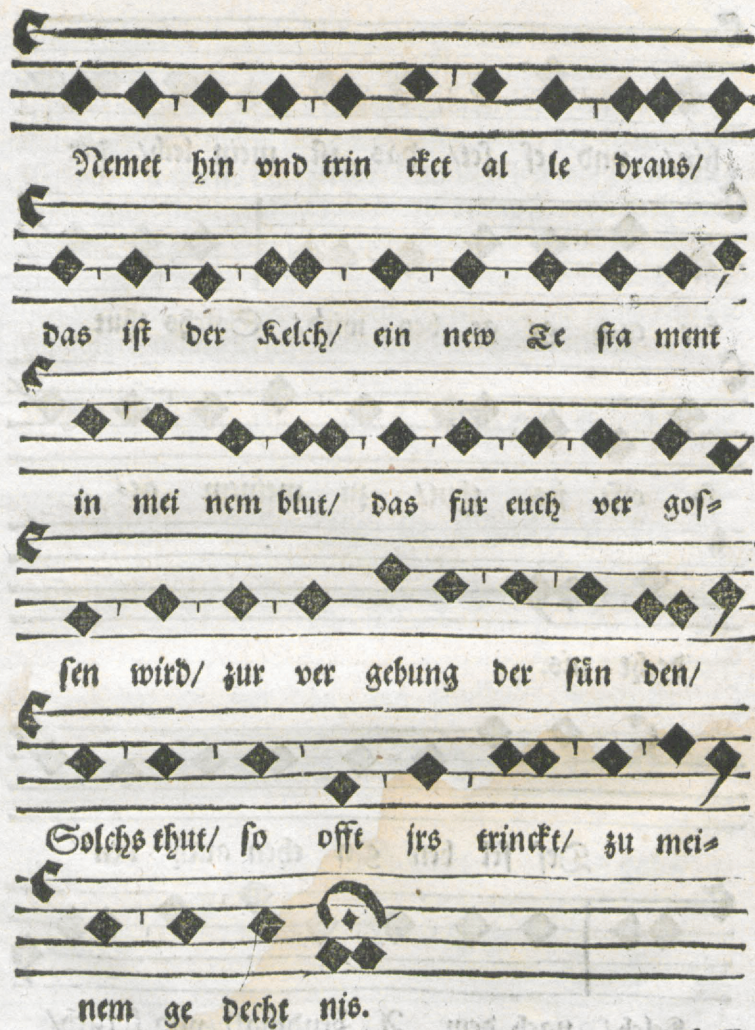 Nemet hin vnd trin cket al le draus/
das ist der Kelch/ ein new Te sta ment
in mei nem blut/ das fur euch ver gos⸗
sen wird/ zur ver gebung der sün den/
Solchs thut/ so offt jrs trinckt/ zu mei⸗
nem ge decht nis.